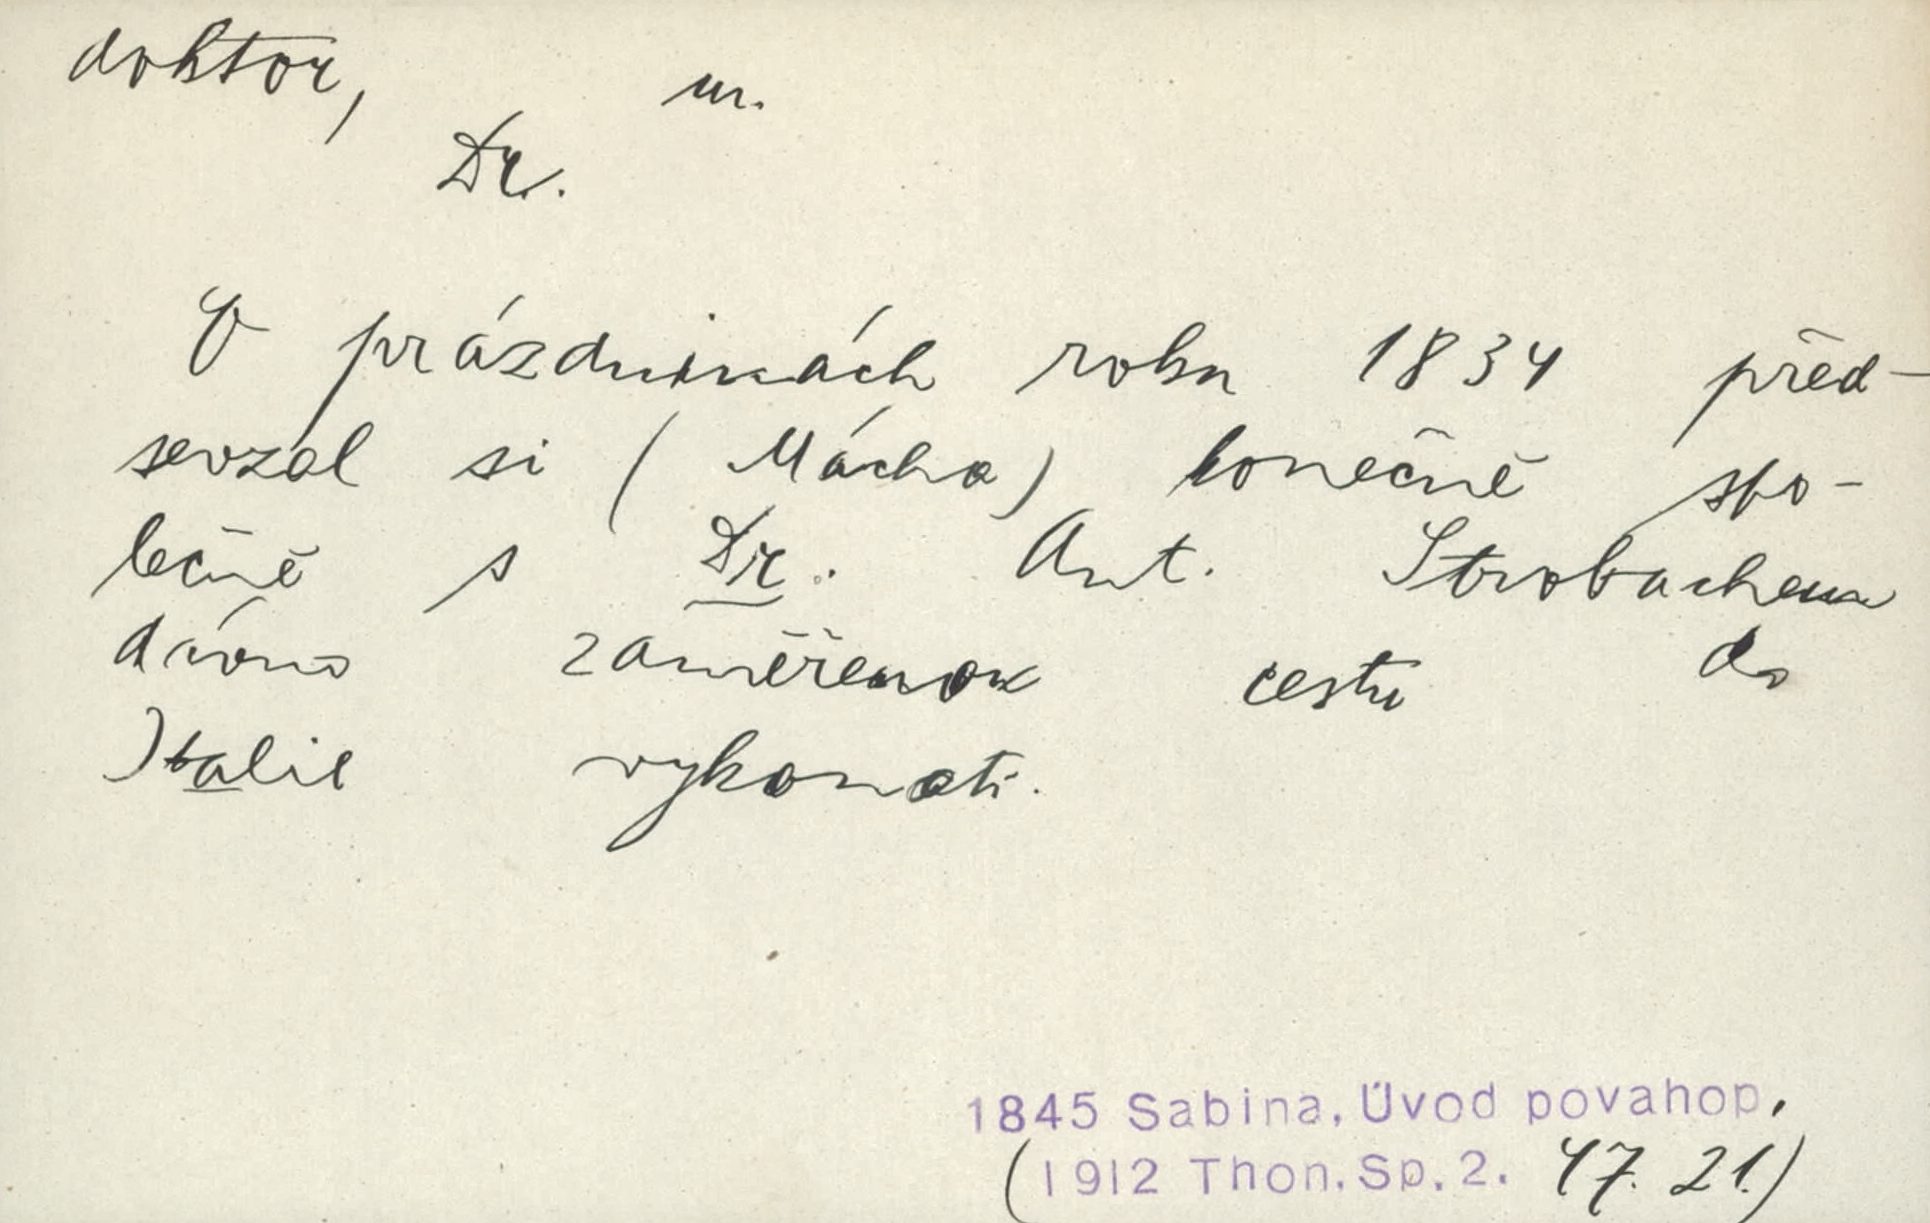 doktor, m.
Dr.
O prázdninách roku 1834 před-
sevzal si (Mácha) konečně spo-
lečně s Dr. Ant. Strobachem
dávno zaměřenou cestu do
Italie vykonati.
1845 Sabina, Úvod povahop.
(1912 Thon. Sp. 2. 47. 21.)